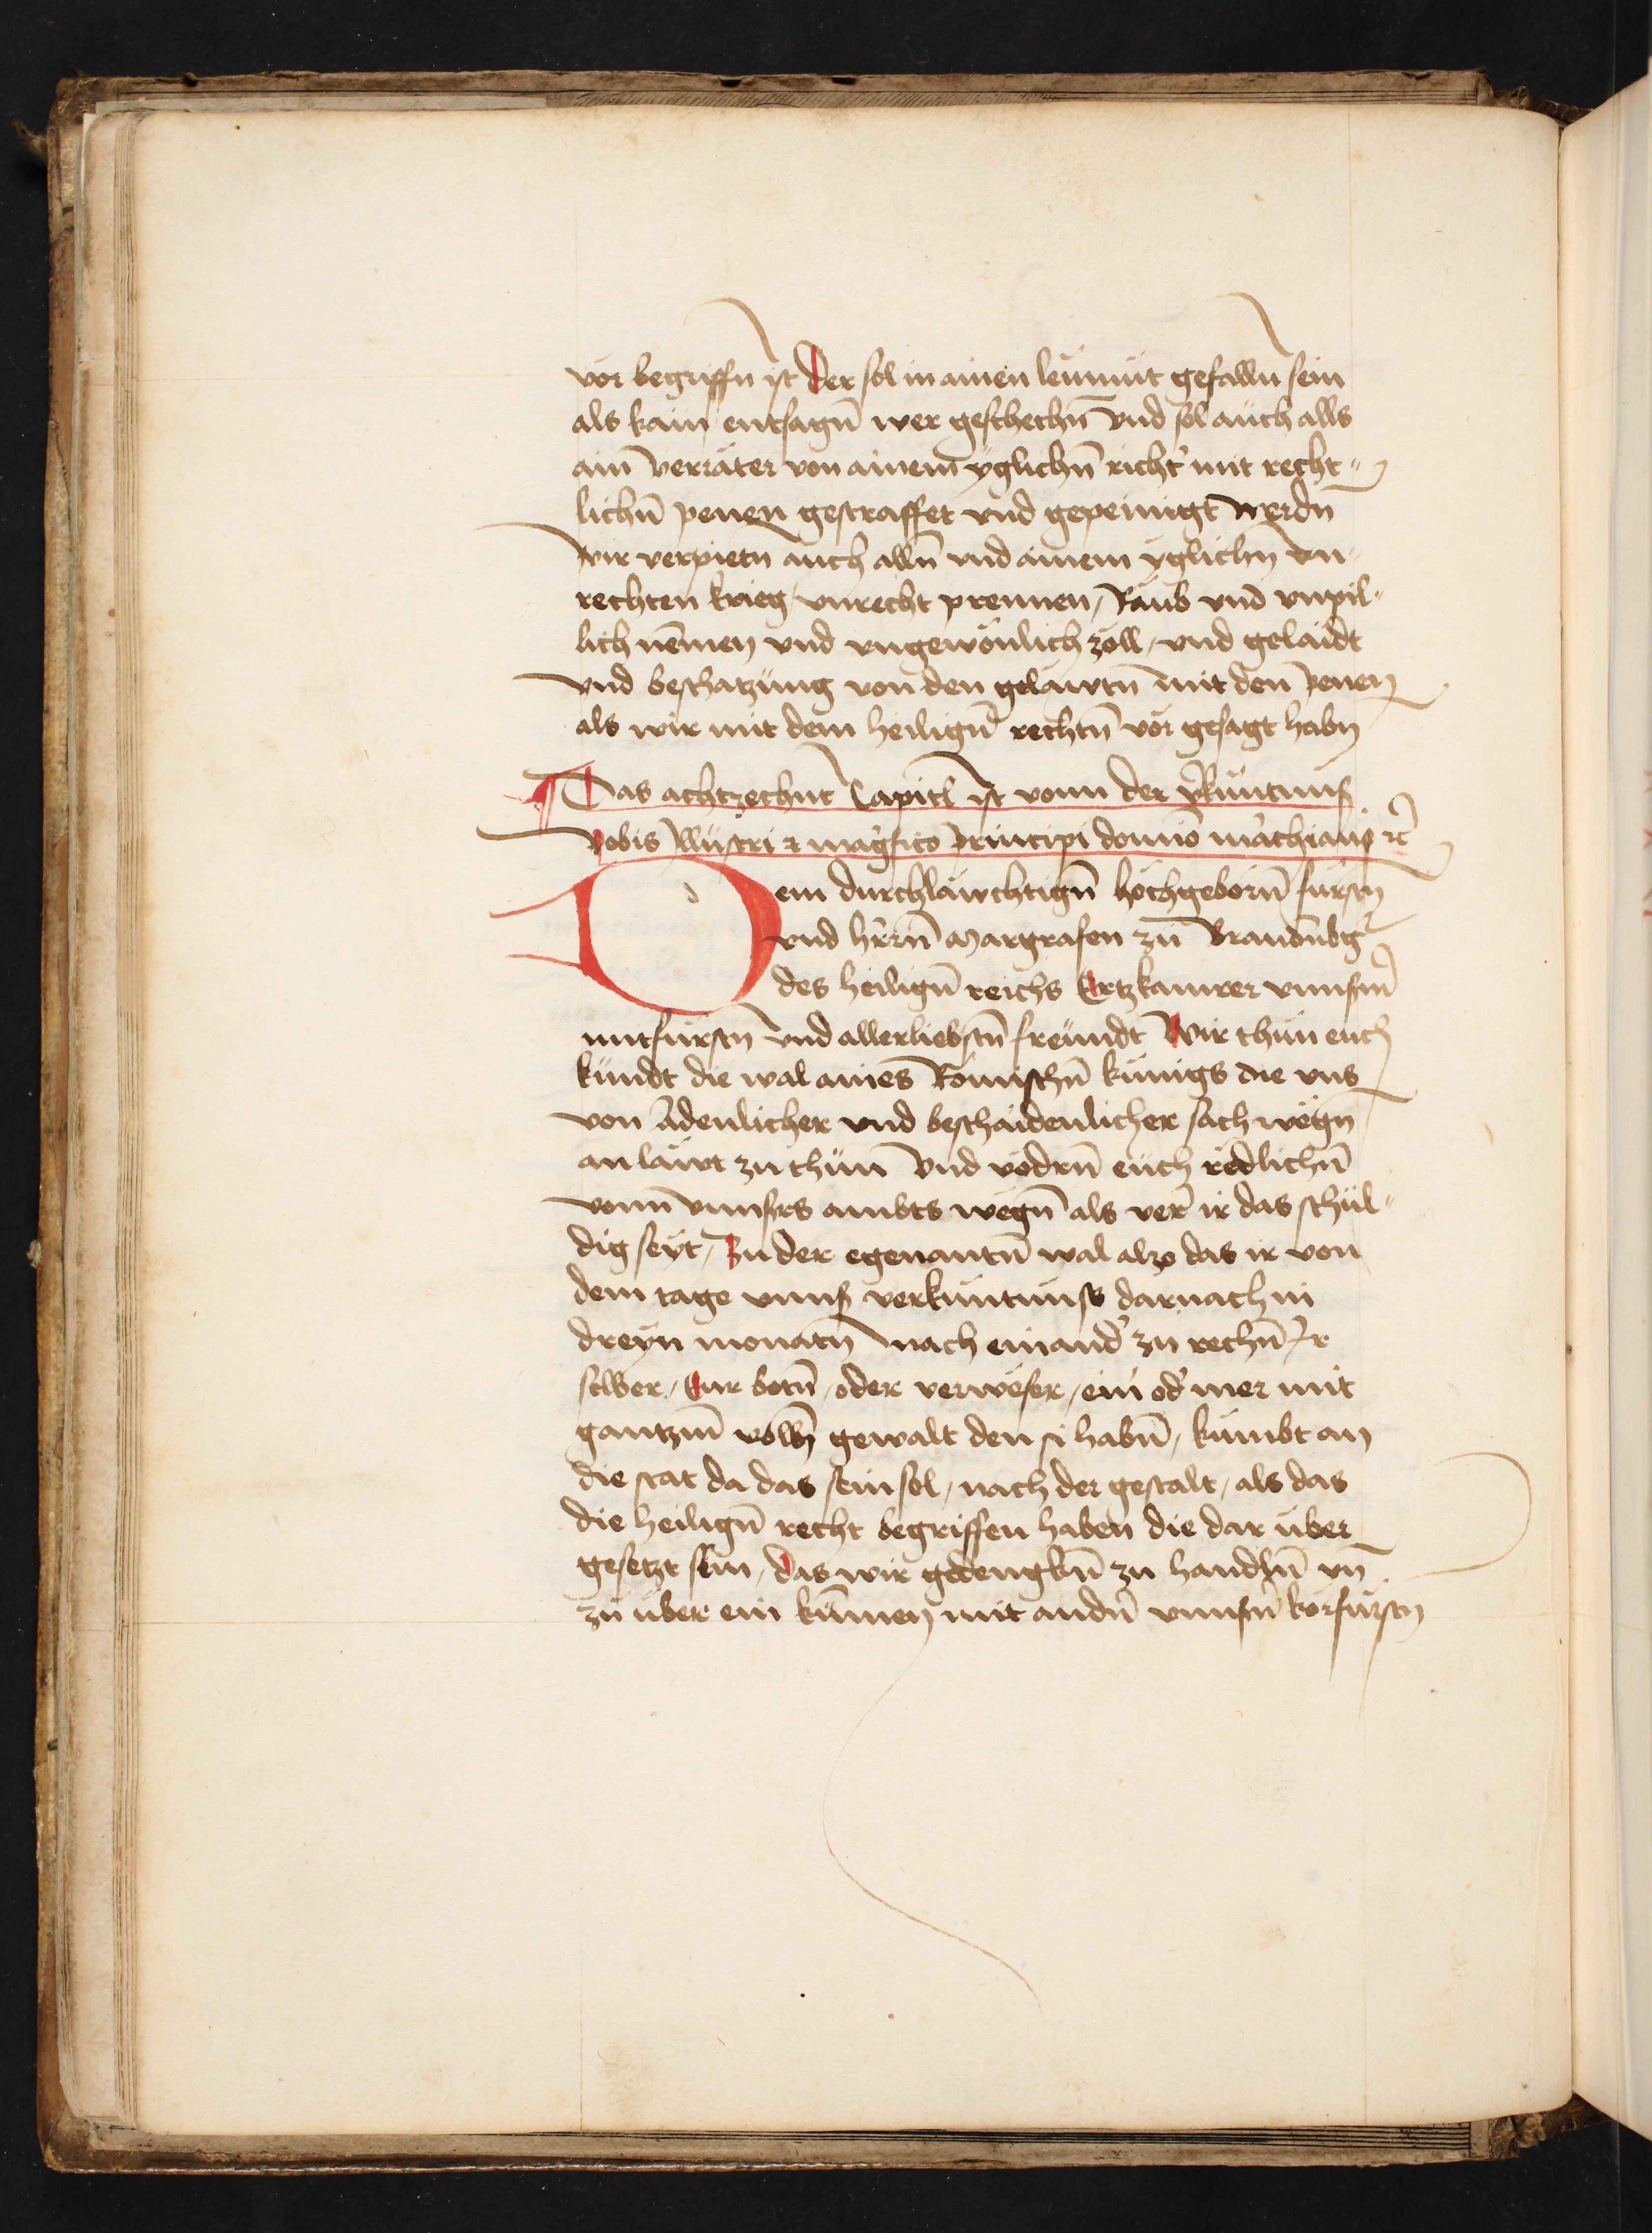 vor begriffn̄ ist Der sol in ainen leünüt gefallñ sein
als kain entsagn̄ wer geschechn̄ vnd sol auch alls
ain verräter von ainem yglichn̄ richt' mit recht„
lichn̄ penen gestraffet vnd gepeinigt werdn̄
Wir verpietn auch alln̄ vnd ainem yglichn vn„
rechten krieg / vnrecht prennen / Raub vnd vnpil„
lich nēmen vnd vngewönlich zöll / vnd gelaidt
vnd beschatzung von den geläwtn̄ mit den penen
als wir mit dem heilign̄ rechtn̄ vor gesagt habn
¶ Das achtzechent Capitl ist vonn der v'küntnuß
Vobis Illustri & mag'fico principi domīo m'achioni &c
Dem durchläwchtign̄ hochgeborn̄ fürstn
vnd h'rrn̄ Margrafen zū Brandn̄bg'
des heilign̄ reichs Ertzkamrer vnnsm̄
mitfürstn vnd allerliebstn̄ freündt Wir thün euch
kündt die wal aines Römischn̄ künigs die vns
von ädenlicher vnd beschaidenlicher sach wegn̄
an läwt zu thün vnd vödrn̄ euch redlichn̄
vonn vnnsers ambts wegn̄ als ver ir das schul„
dig seyt / Zu der egenantn̄ wal alzo das ir von
dem tage vnns' verküntnuß darnach in
dreyn monatn nach einand' zu rechn̄ Ir
selber / Eur botn̄ / oder verweser / ein od' mer mit
gantzm̄ volln̄ gewalt den si habn̄ / kumbt an
die stat da das sein sol / nach der gestalt / als das
die heilign̄ recht begriffen haben die dar über
gesetzt sein / das wir gedengkn̄ zu handln̄ vn̄
zu über ein kūmen mit andn̄ vnnsn̄ korfürstn